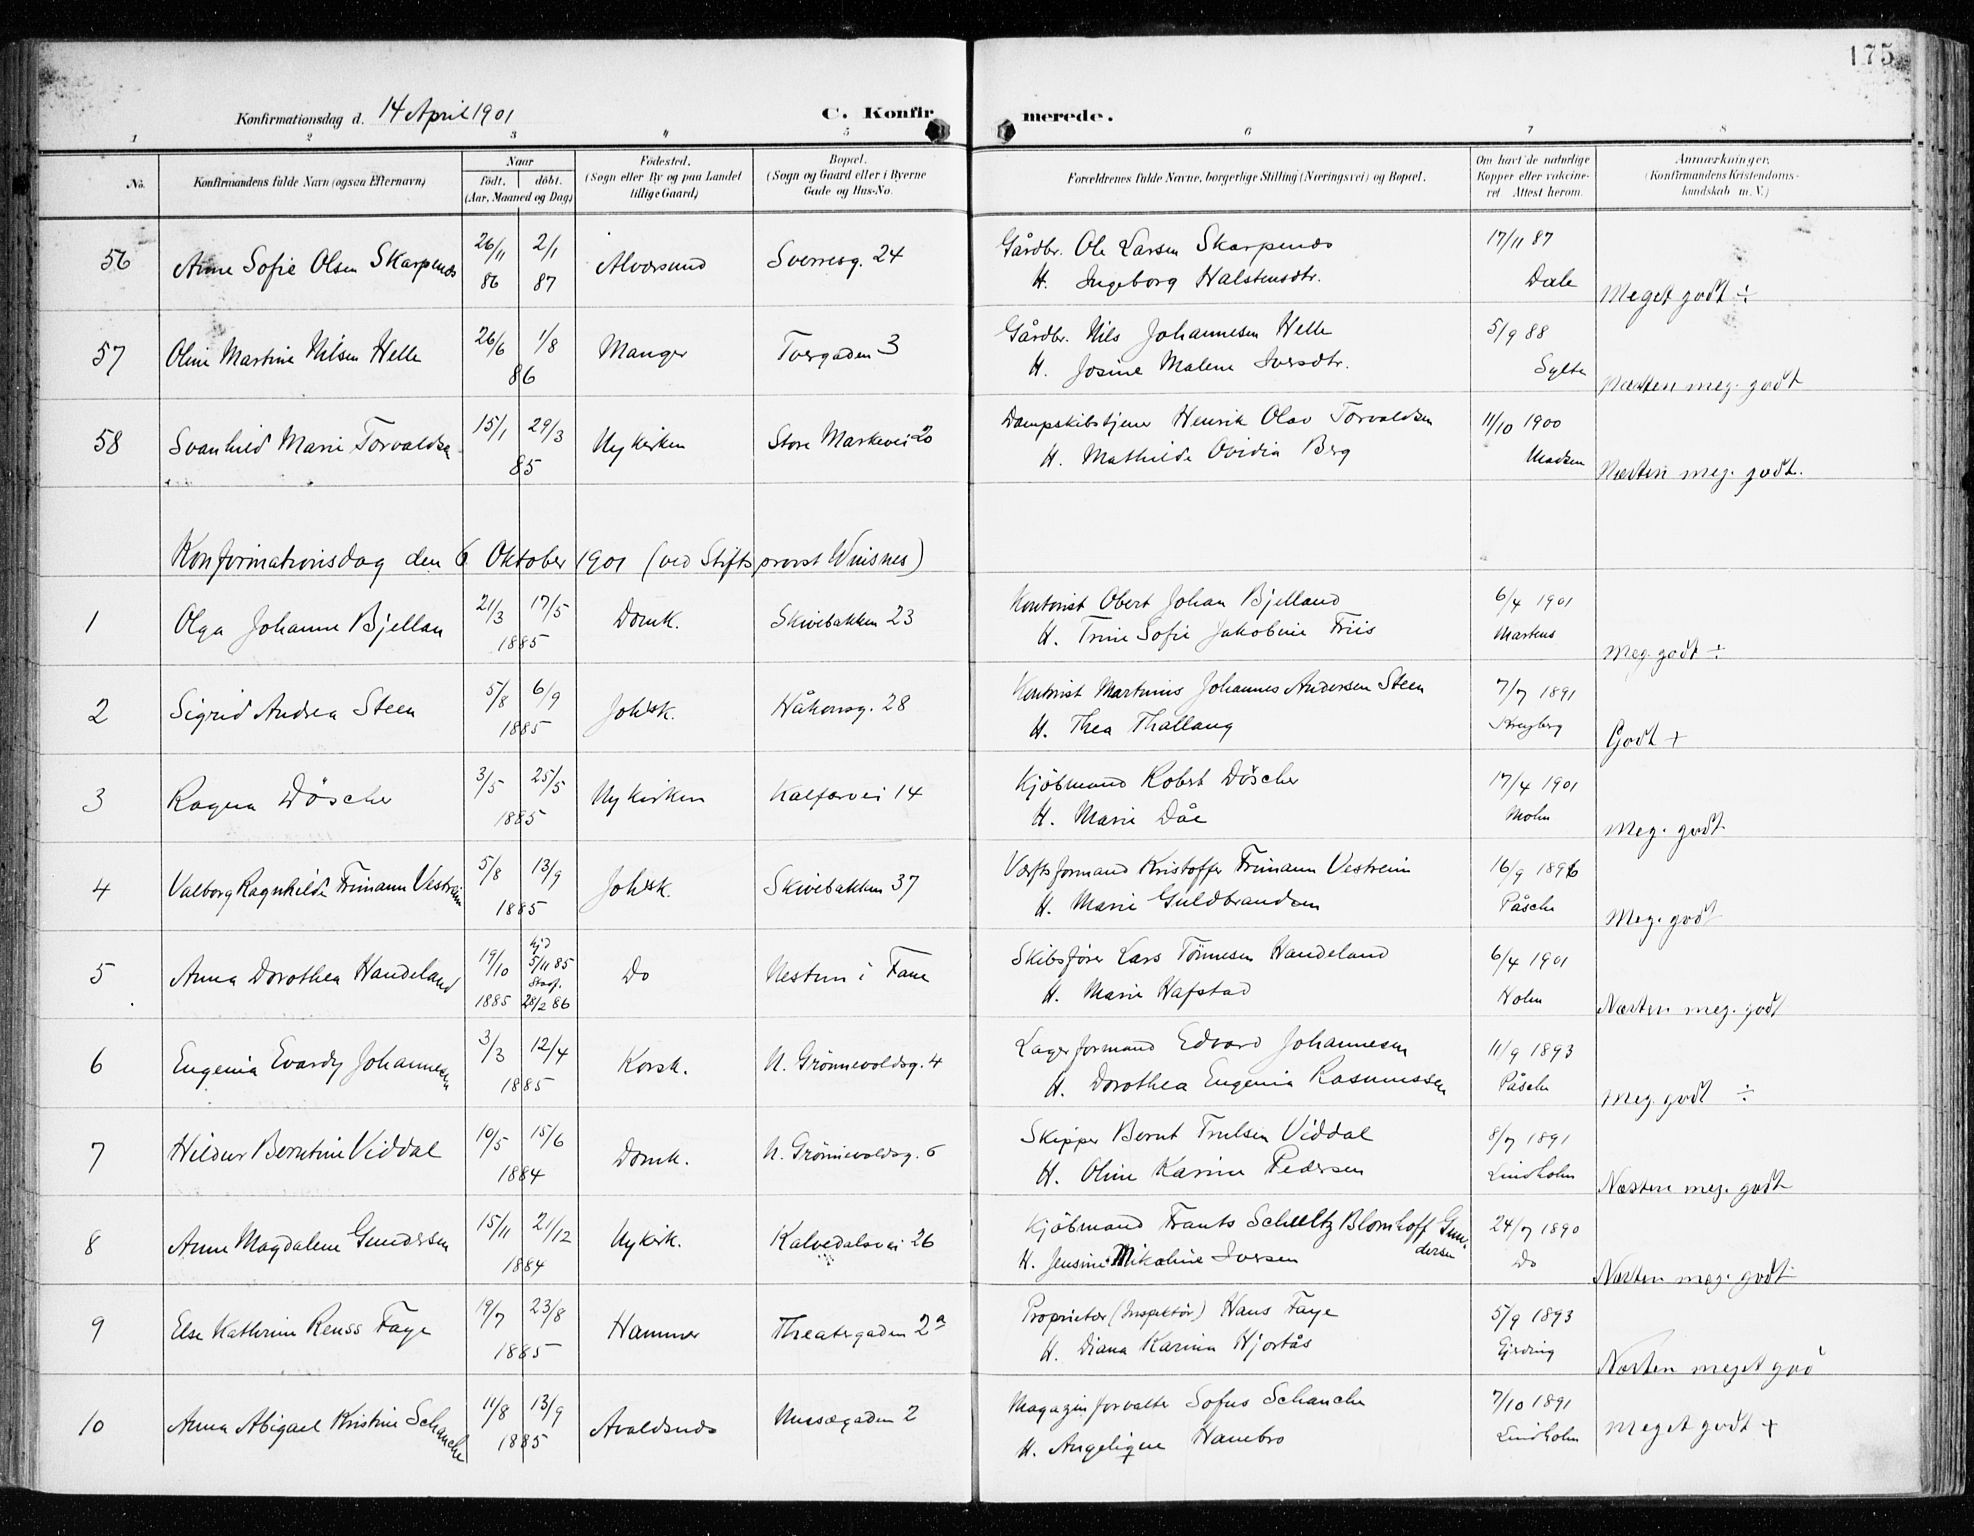 175
Konfirmationsdag d. 14 April 1901 C. Konfirmerede.
1 2 3 4 5 6 7 8
No. Konfirmandens fulde Navn (ogsaa Efternavn) Naar født. døbt. (Aar, Maaned og Dag) Fødested. (Sogn eller By og paa Landet tillige Gaard) Bopæl. (Sogn og Gaard eller i Byerne Gade og Hus-No. Forældrenes fulde Navne, borgerlige Stilling (Næringsvei) og Bopæl. Om havt de naturlige Kopper eller vakcineret Attest herom. Anmærkninger. (Konfirmandens Kristendomskundskab m. V.)
56 Anne Sofie Olsen Skarpenes 26/11 86 2/1 87 Alversund Sverresg. 24 Gårdbr. Ole Larsen Skarpenes 17/11 87
H. Ingeborg Halstensdtr. Dale Meget godt ÷
57 Oline Martine Nilsen Helle 26/6 1/8 86 Manger Tvergaden 3 Gårdbr. Nils Johannesen Helle 5/9 88
H. Josine Malene Iversdtr. Sylte Næsten meg. godt
58 Svanhild Marie Torvaldsen 15/1 29/3 85 Nykirken Store Markevei 20 Dampskibstjener Henrik Olav Torvaldsen 11/10 1900
H. Mathilde Ovidia Berg Madsen Næsten meg. godt.
Konfirmationsdag den 6 Oktober 1901 (ved Stiftsprovst Wisnes)
1 Olga Johanne Bjellan 21/3 17/5 1885 Domk. Skivebakken 23 Kontorist Obert Johan Bjelland 6/4 1901
H. Trine Sofie Jakobine Friis Martens Meg. godt ÷
2 Sigrid Andrea Steen 5/8 6/9 1885 Johsk. Håkonsg. 28 Kontorist Martinius Johannes Andersen Steen 7/7 1891
H. Thea Thallaug Godt +
3 Ragna Döscher 3/5 25/5 1885 Nykirken Kalfarvei 14 Kjöbmand Robert Döscher 17/4 1901
H. Marie Dåe Mohn Meg. godt
4 Valborg Ragnhilde Frimann Vestreim 5/8 13/9 1885 Johsk. Skivebakken 37 Værftsformand Kristoffer Frimann Vestreim 16/9 1896
H. Marie Guldbrandsen Påsche Meg. godt
5 Anna Dorothea Handeland 19/10 1885 hjd 5/11 85 Stadf. 28/2 86 Do Nestun i Fane Skibsfører Lars Tönnesen Handeland 6/4 1901
H. Marie Hafstad Holm Næsten meg. godt
6 Eugenia Evardy Johannesen 3/3 12/4 1885 Korsk. N. Grönnevoldsg. 4 Lagerformand Edvard Johannesen 11/9 1893
H. Dorothea Eugenia Rasmussen Påsche Meg. godt ÷
7 Hildur Berntine Viddal 10/5 15/6 1884 Domk. N. Grönnevoldsg. 6 Skipper Bernt Trulsen Viddal 8/7 1891
H. Oline Karine Pedersen Lindholm Næsten meg. godt
8 Anne Magdalene Gundersen 15/11 21/12 1884 Nykirk. Kalvedalsvei 26 Kjöbmand Frants Scheeltz Blomhoff Gundersen 24/7 1890
H. Jensine Mikaline Iversen Do Næsten meg. godt
9 Else Kathrine Reuss Faye 19/7 23/8 1885 Hammer Theatergaden 2a Proprietær (Inspektör) Hans Faye 5/9 1893
H. Diana Karina Hjortås Gjerding Næsten meget god
10 Anna Abigael Kristine Schanche 11/8 13/9 1885 Avaldsnes Nussegaden 2 Magazinforvalter Sofus Schanche 7/10 1891
H. Angelique Hanebro Lindholm Meget godt +